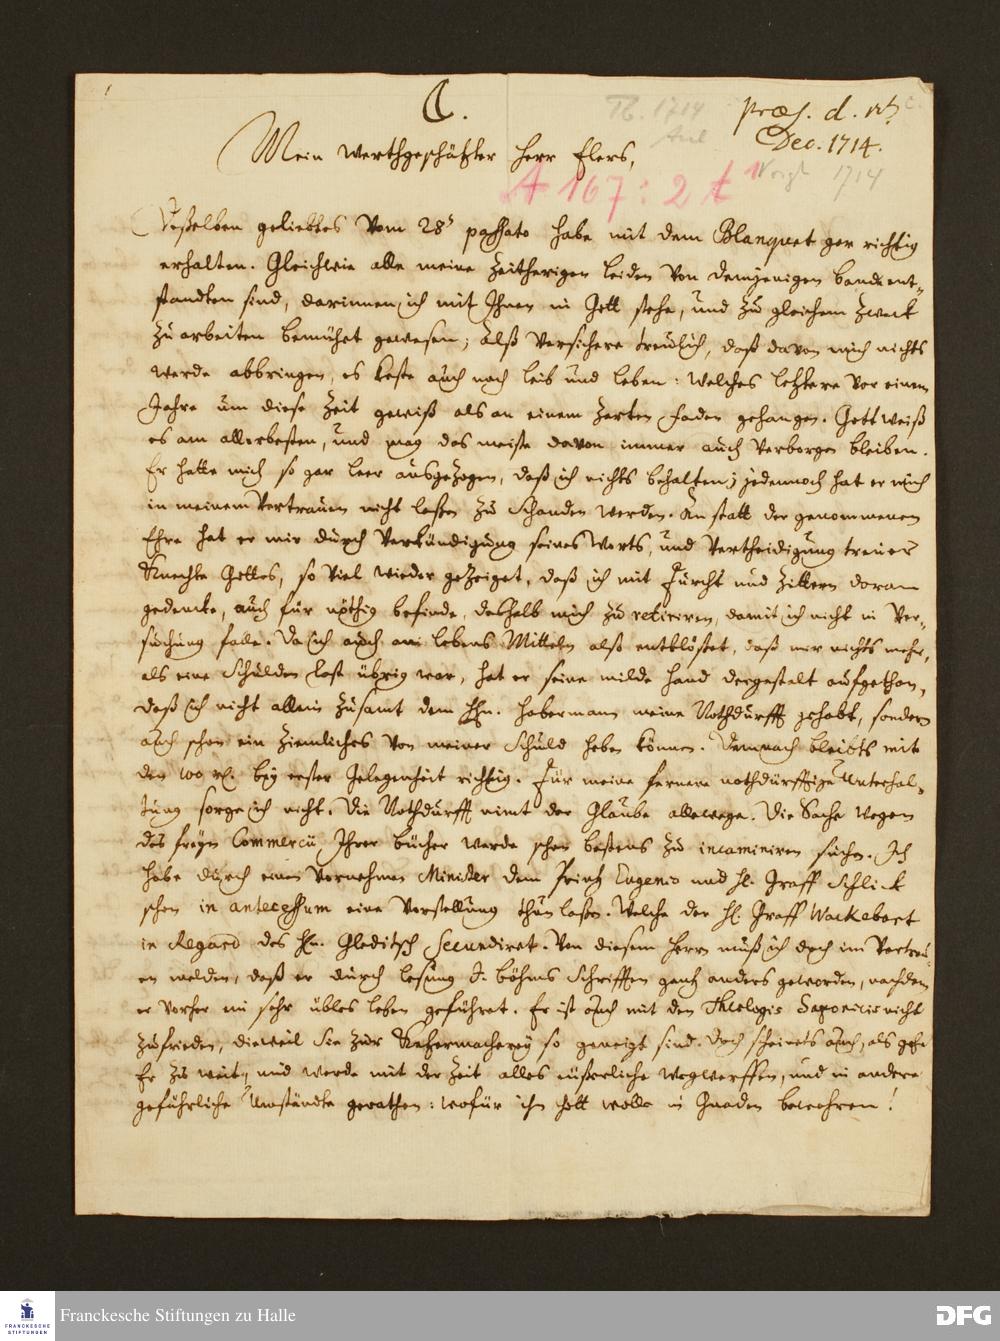 præs. d.
Dec. 1714.
A 167: 2 t 1
1714
Mein Werthgeschätzter Herr Elers,
Deßelben geliebtes vom 28 passato habe mit dem Blanquet gar richtig
erhalten. Gleichwie alle meine Zeitherigen Leiden von demjenigen bande ent-
standten sind, darinnen ich mit Ihnen in Gott stehe, und zu gleichem Zweck
zu arbeiten bemühet gewesen; Alß versichere treulich, daß davon mich nichts
werde abbringen, es koste auch noch leib und leben: welches letztere vor einem
Jahre um diese Zeit gewiß als an einem Zarten faden gehangen. Gott weiß
es am allerbesten, und mag das meiste davon immer auch verborgen bleiben.
Er hatte mich so gar leer ausgezogen, daß ich nichts behalten; jedennoch hat er mich
in meinem Vertrauen nicht laßen zu Schanden werden. An statt der genommenen
Ehre hat er mir durch Verkündigung seines Worts, und Vertheidigung treuer
Knechte Gottes, so viel wieder gezeiget, daß ich mit Furcht und Zittern daran
gedencke, auch für nöthig befinde, deshalb mich zu retiriren, damit ich nicht in Ver-
suchung falle. Da ich auch an lebens Mitteln alß entblößet, daß mir nichts mehr,
als eine Schulden last übrig war, hat er seine milde hand dergestalt aufgethan,
daß ich nicht allein zusamt dem Hn. Habermann meine Nothdurfft gehabt, sondern
auch schon ein ziemliches von meiner Schuld heben können. Demnach bleibts mit
den 100 rl. bey erster Gelegenheit richtig. Für meine fernere nothdürfftige Unterhal-
tung sorge ich nicht. Die Nothdurfft nimt der Glaube allewege. Die Sache wegen
des freyen Commercii Ihrer bücher werde schon bestens zu incaminiren suchen. Ich
habe durch einen Vornehmen Minister dem Printz Eugenio und H. Graff Schlick
schon in antecessum eine Vorstellung thun laßen. Welche der H. Graff Wackebart
in Regard des Hn. Gleditsch secundiret. Von diesem Herrn muß ich doch im Vertrau-
en melden, daß er durch lesung J. böhms Schrifften gantz anders geworden, nachdem
er vorher ein sehr übles leben geführet. Er ist auch mit den Theologis Saxonicis nicht
zufrieden, dieweil sie zur Ketzermacherey so geneigt sind. Doch scheinets auch, als gehe
Er zu weit, und werde mit der Zeit alles äußerliche wegwerffen, und in andere
gefährliche Umständte gerathen: wofür ihn Gott wolle in Gnaden bewahren!
Franckesche Stiftungen zu Halle
FRANCKESCHE
STIFTUNGEN
DFG